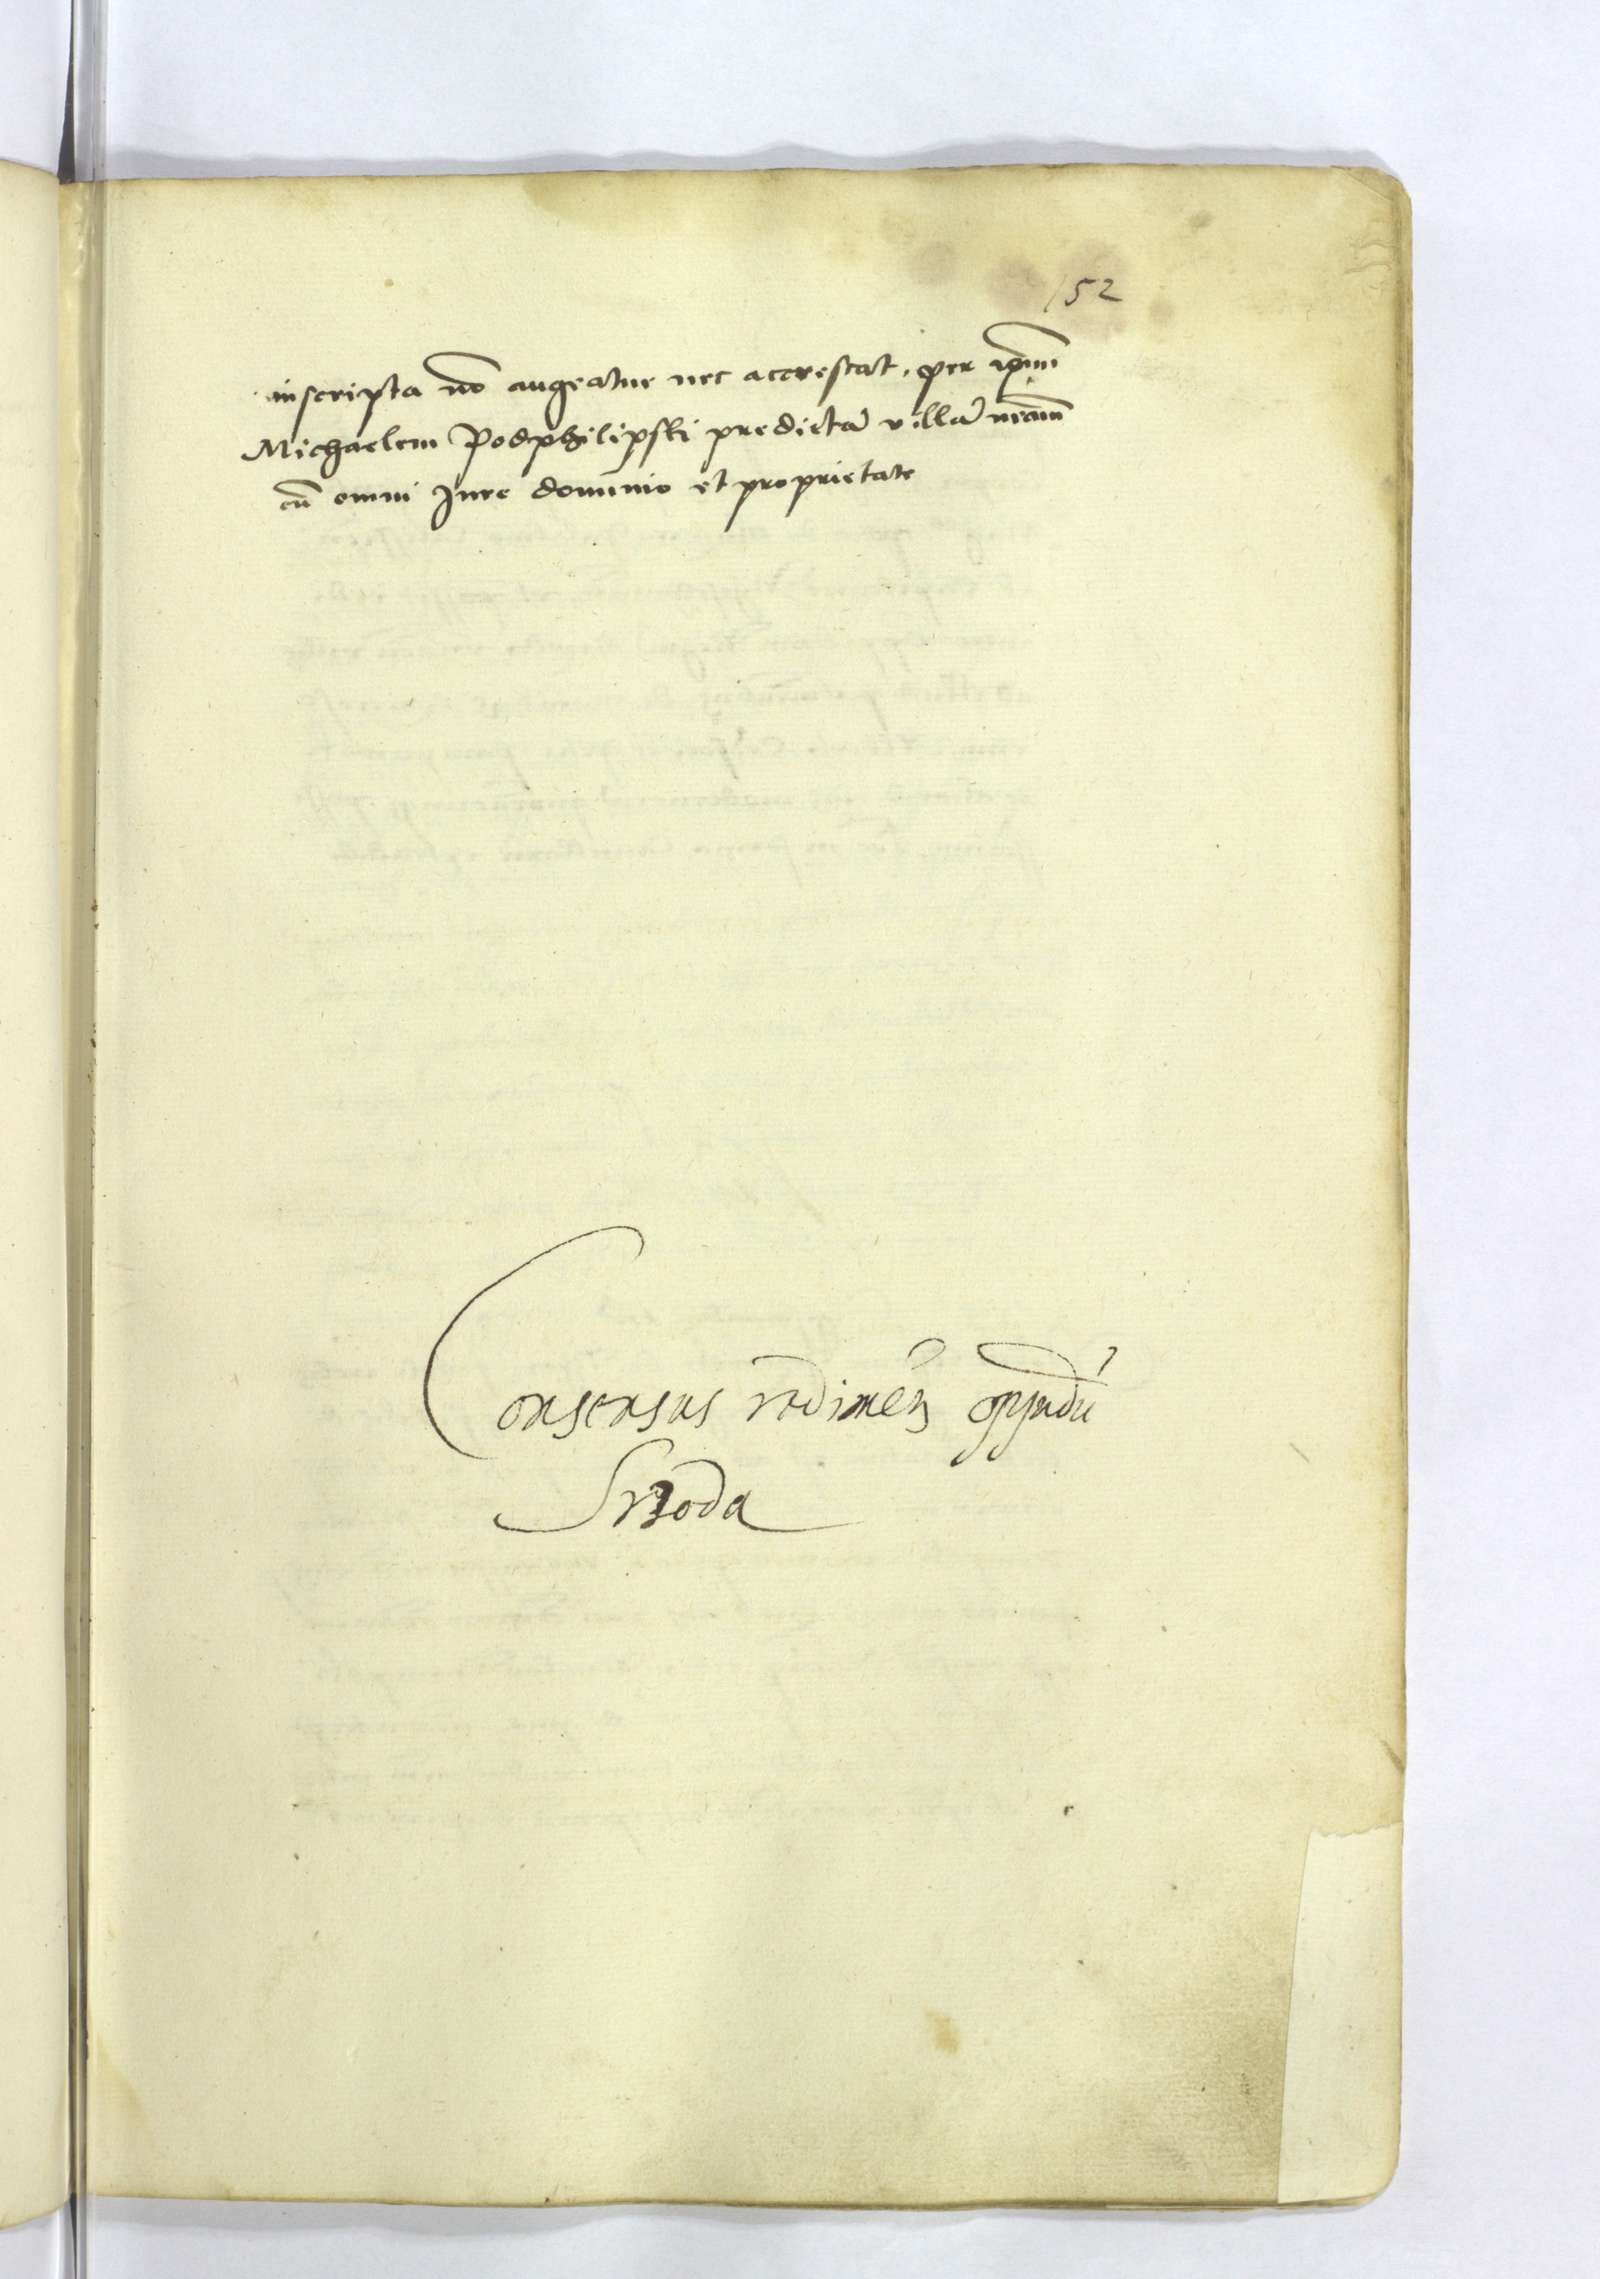 152
inscripta nō augeatur nec accrescat. per ip̄um
Michaelem Podphilipski predictā villā nr̄am
cū omni Jure dominio et proprietate
Consensus redimēn oppidū
Srzoda